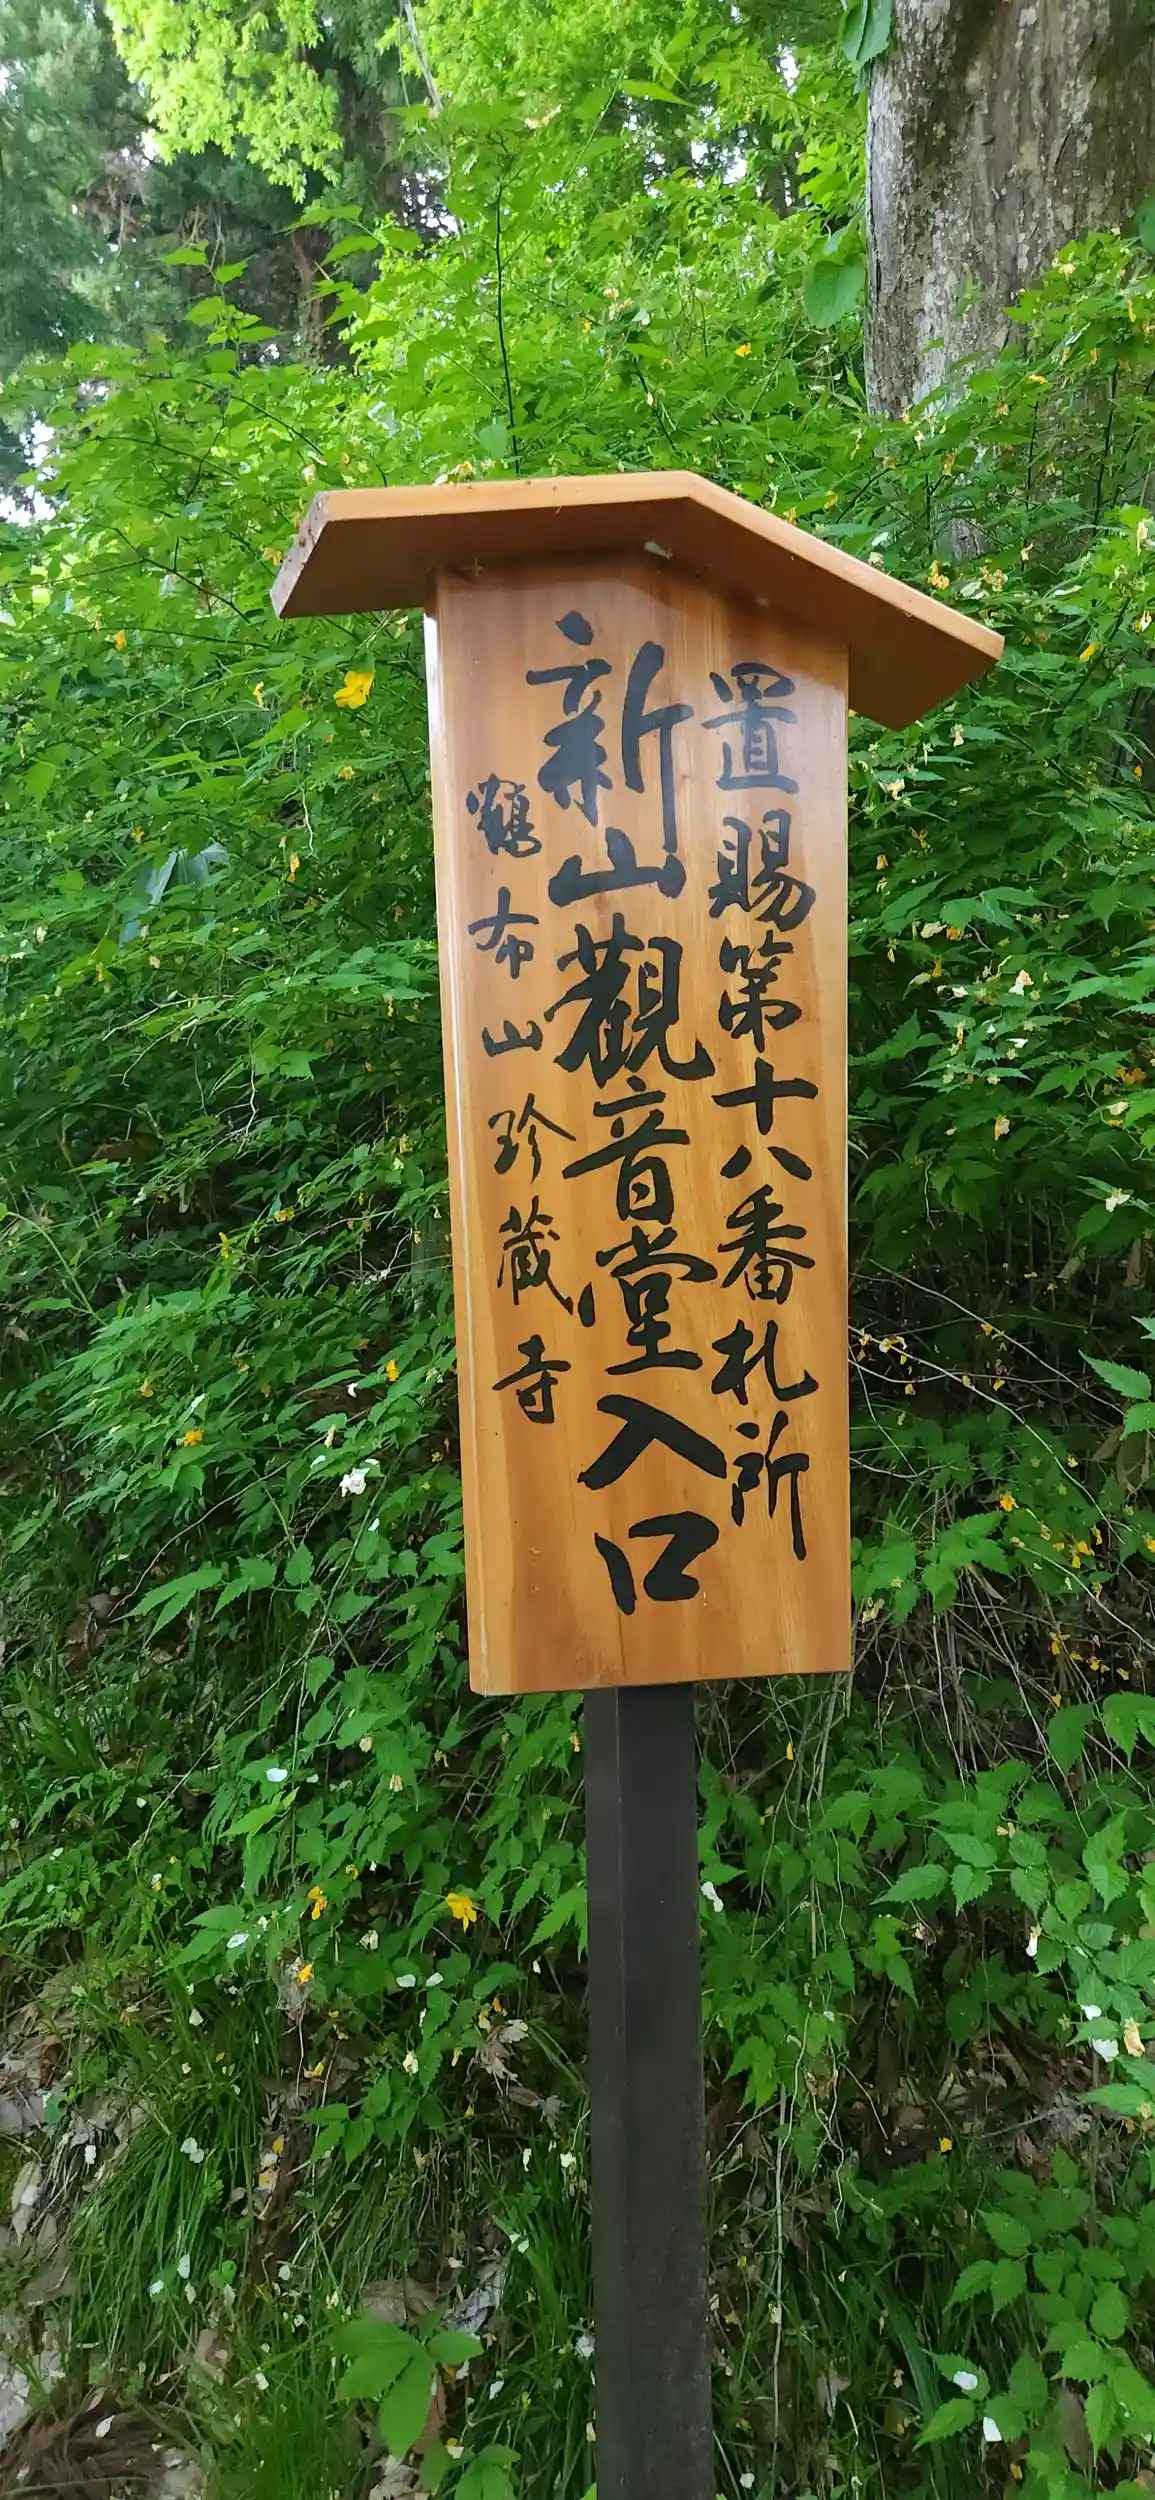 置賜第十八番札所
新山觀音堂入口
鶴布山珍蔵寺